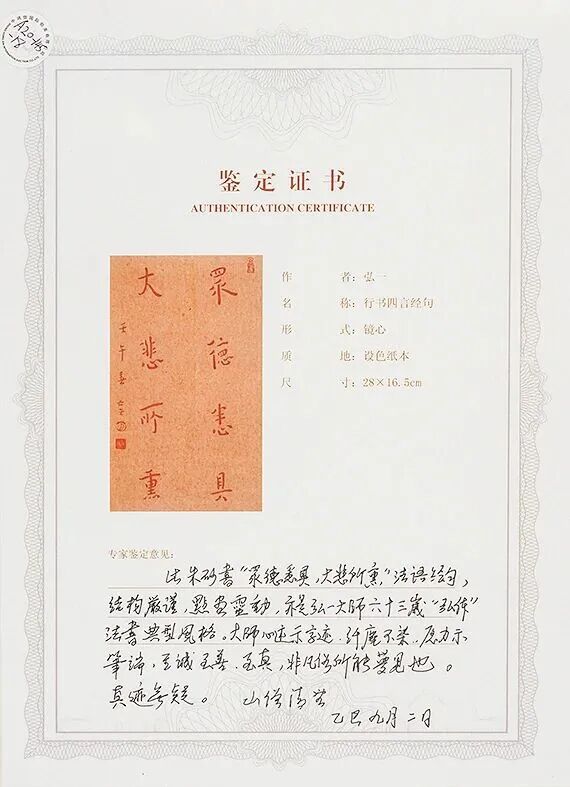 鉴定证书
AUTHENTICATION CERTIFICATE
作者：弘一
名称：行书四言经句
形式：镜心
质地：设色纸本
尺寸：28×16.5cm
眾德悉具
大悲所熏
壬午春
专家鉴定意见：
此朱砂書“眾德悉具，大悲所熏”法语经句，
结构嚴謹，點畫靈動，乃是弘一大师六十三歲“弘体”
法書典型風格，大师心迹示字迹，纤塵不染，愿力示
筆端，至诚至善，至真，非凡俗所能夢見也。
真迹無疑。
乙巳九月二日